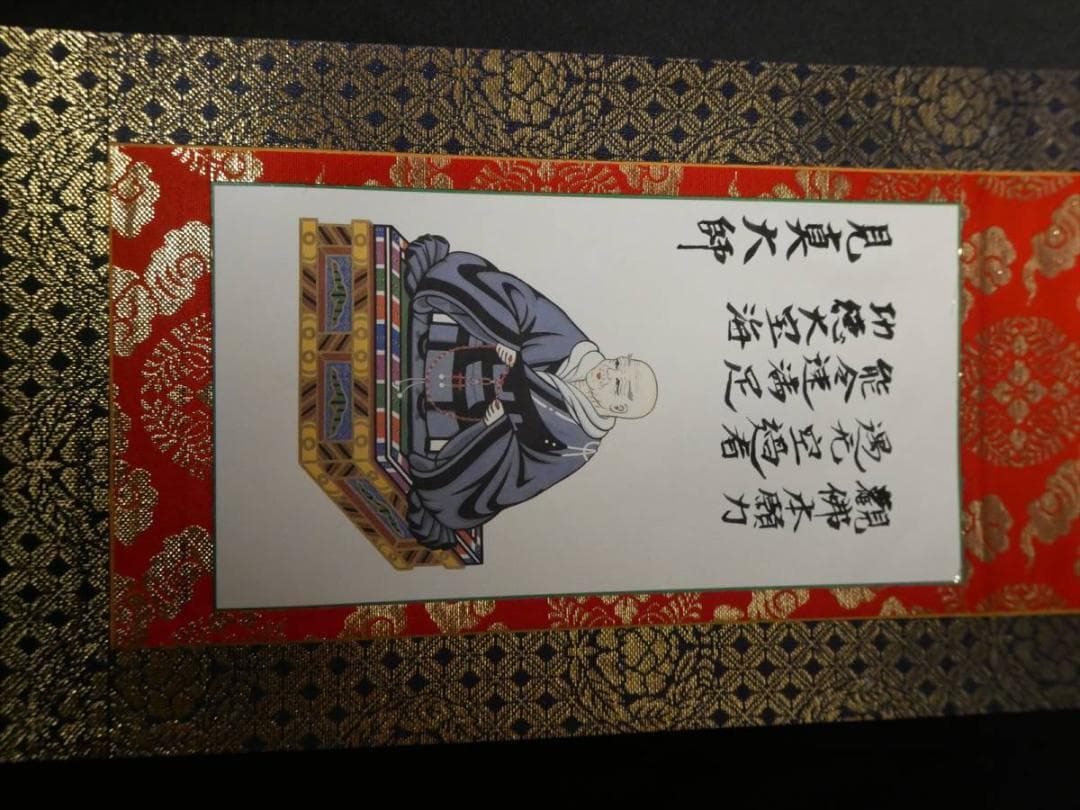 觀佛本願力
遇无空過者
能令速満足
功徳大宝海
見真大師